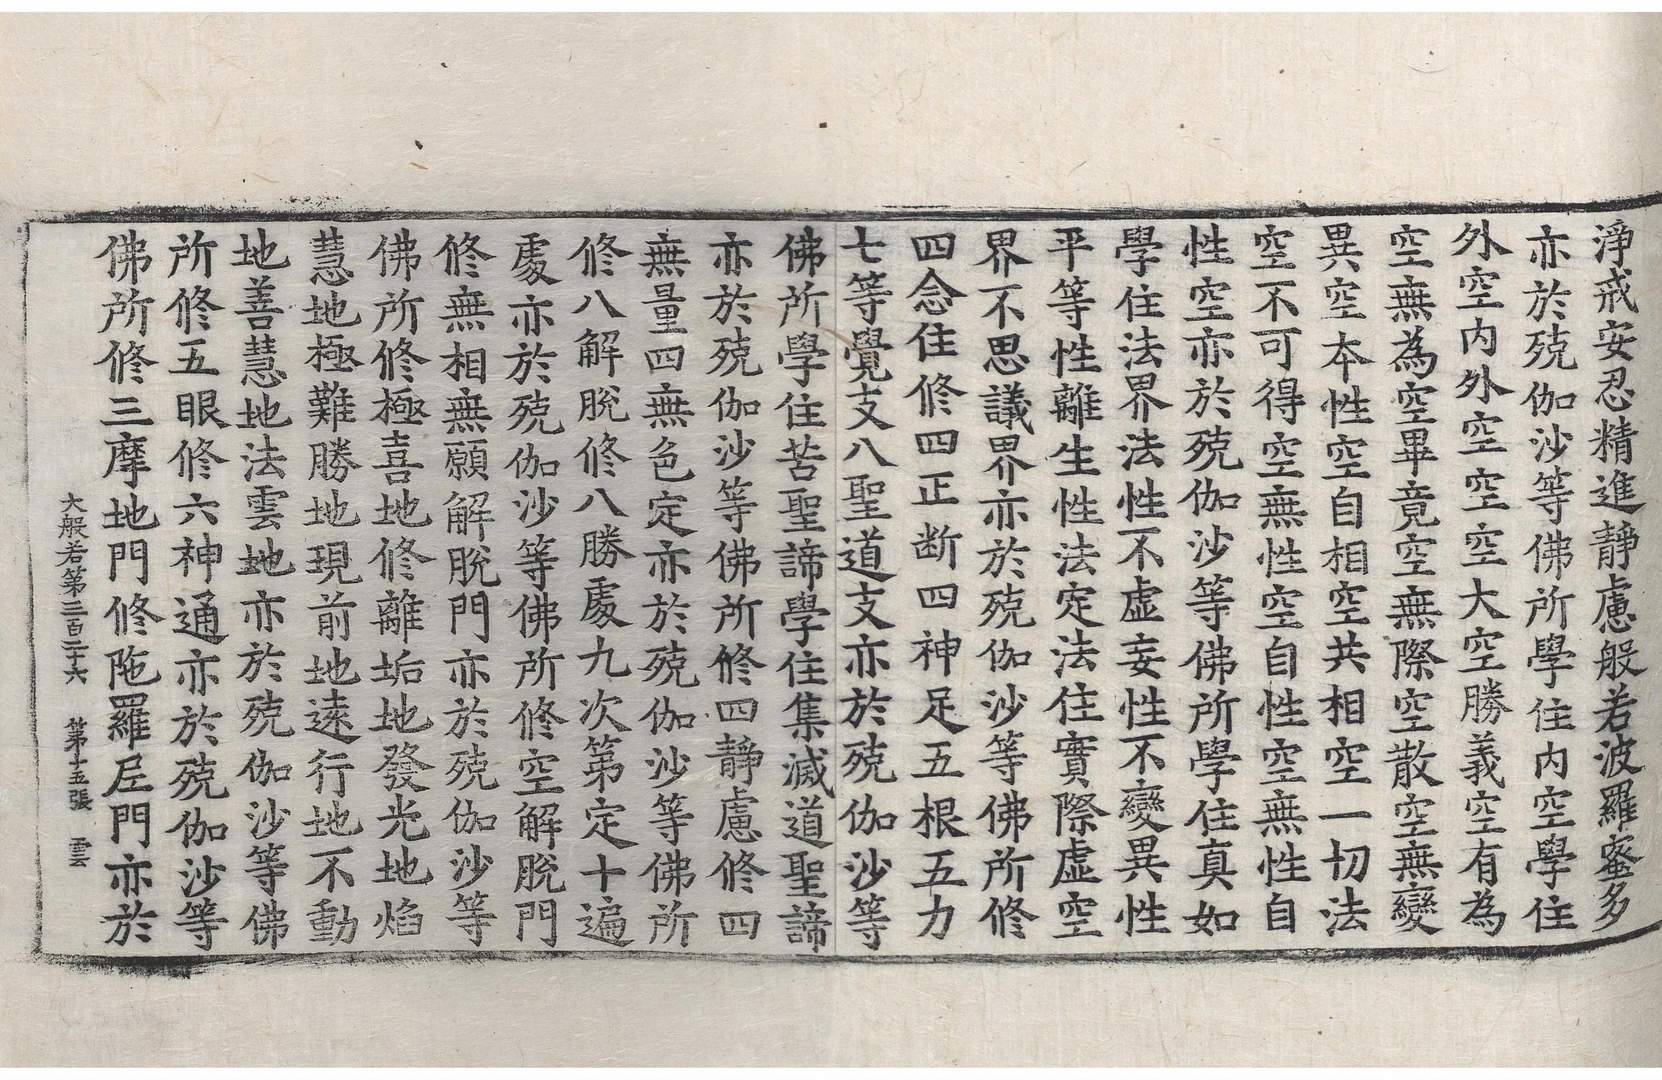 淨戒安忍精進靜慮般若波羅蜜多
亦於殑伽沙等佛所學住内空學住
外空内外空空空大空勝義空有為
空無為空畢竟空無際空散空無變
異空本性空自相空共相空一切法
空不可得空無性空自性空無性自
性空亦於殑伽沙等佛所學住真如
學住法界法性不虛妄性不變異性
平等性離生性法定法住實際虛空
界不思議界亦於殑伽沙等佛所修
四念住修四正断四神足五根五力
七等覺支八聖道支亦於殑伽沙等
佛所學住苦聖諦學住集滅道聖諦
亦於殑伽沙等佛所修四靜慮修四
無量四無色定亦於殑伽沙等佛所
修八解脫修八勝處九次第定十遍
處亦於殑伽沙等佛所修空解脫門
修無相無願解脫門亦於殑伽沙等
佛所修極喜地修離垢地發光地焰
慧地極難勝地現前地遠行地不動
地善慧地法雲地亦於殑伽沙等佛
所修五眼修六神通亦於殑伽沙等
佛所修三摩地門修陁羅尼門亦於
大般若第三百二十六 第十五張 雲